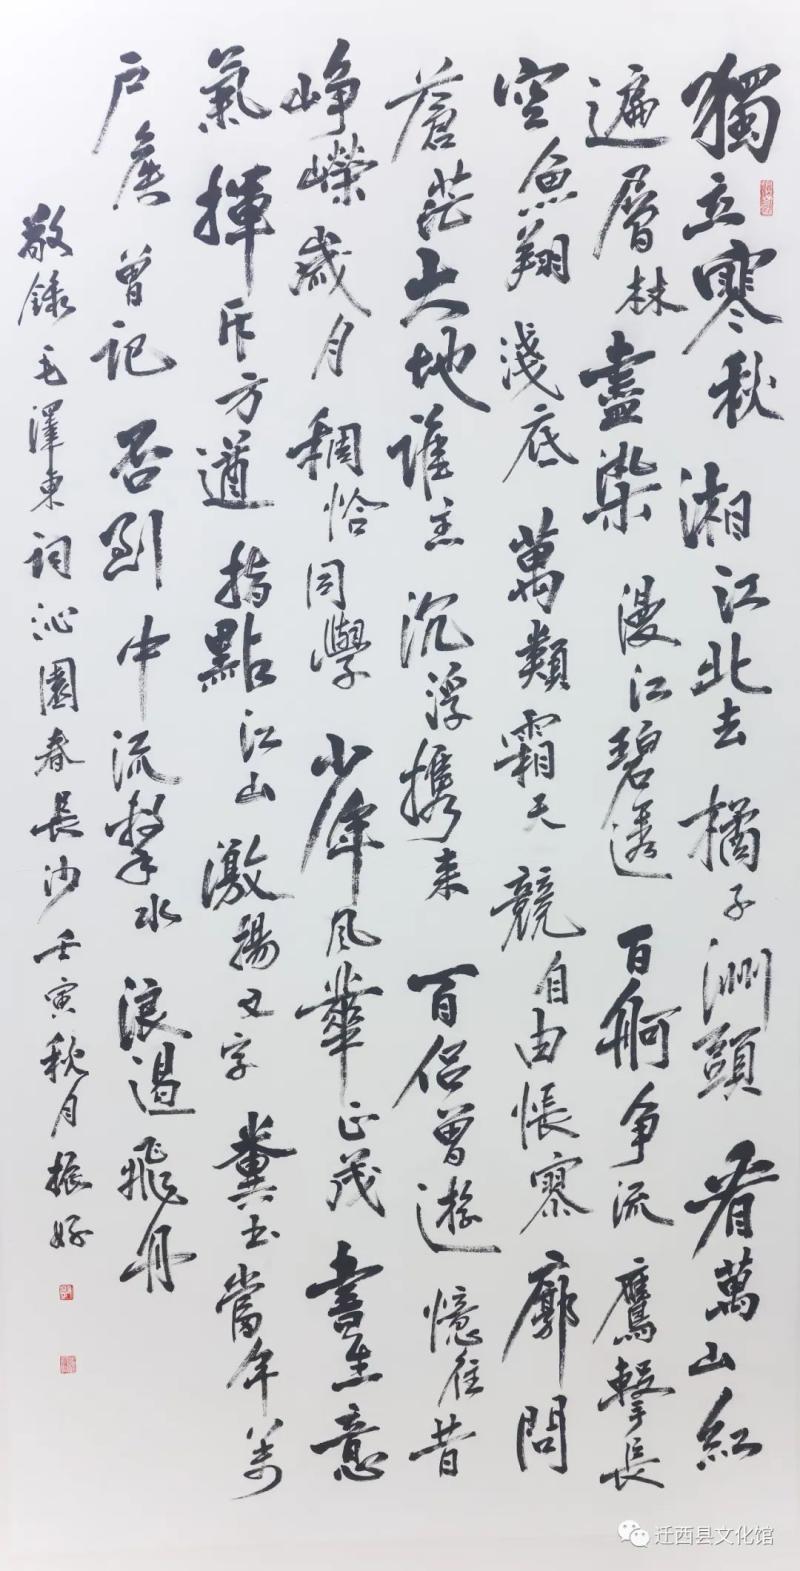 獨立寒秋湘江北去橘子洲頭看萬山紅
遍層林盡染漫江碧透百舸争流鷹擊長
空魚翔淺底萬類霜天競自由悵寥廓問
蒼茫大地誰主沉浮携來百侶曾遊憶往昔
崢嶸歲月稠恰同學少年風華正茂書生意
氣揮斥方遒指點江山激揚文字糞土當年萬
户侯曾記否到中流擊水浪遏飛舟
敬錄毛澤東詞沁園春長沙壬寅秋月振
迁西县文化馆